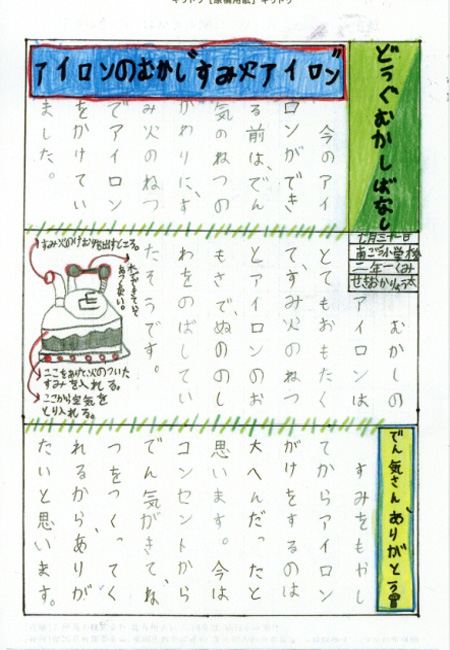 どうぐむかしばなし
七月三十一日
南ごう小学校
二年一くみ
アイロンのむかし"すみ火アイロン"
今のアイ
ロンができ
る前は、でん
気のねつの
かわりに、す
み火のねつ
でアイロン
をかけてい
ました。
むかしの
アイロンは
とてもおもたく
て、すみ火のねつ
とアイロンのお
もさで、ぬののし
わをのばしてい
たそうです。
すみ火のけむりを出すところ。
木でできていて
あつくない。
ここをあけて、火のついた
すみを入れる。
ここから空気を
とり入れる。
でん気さん、ありがとう
すみをもやし
てからアイロン
がけをするのは
大へんだったと
思います。今は
コンセントから
でん気がきて、ね
つをつくってく
れるから、ありが
たいと思います。